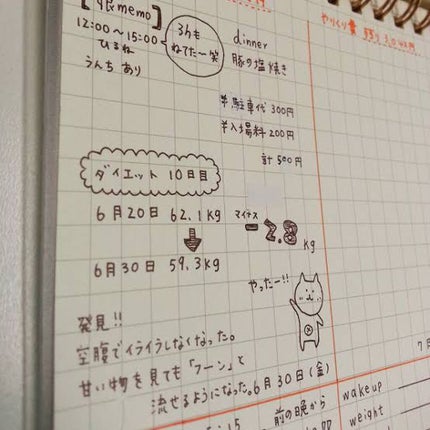 memo】
12:00〜15:00
ひるね
うんちあり
3hも
ねてたー笑
dinner
豚の塩焼き
¥駐車代 300円
¥入場料 200円
計 500円
ダイエット 10日目
6月20日 62.1kg
マイナス
-2.8kg
6月30日 59.3kg
やったー!!
発見!!
空腹でイライラしなくなった。
甘い物を見ても「フーン」と
流せるようになった。
6月30日(金)
前の晩から
やりくり費 残り
wake up
weight
7月